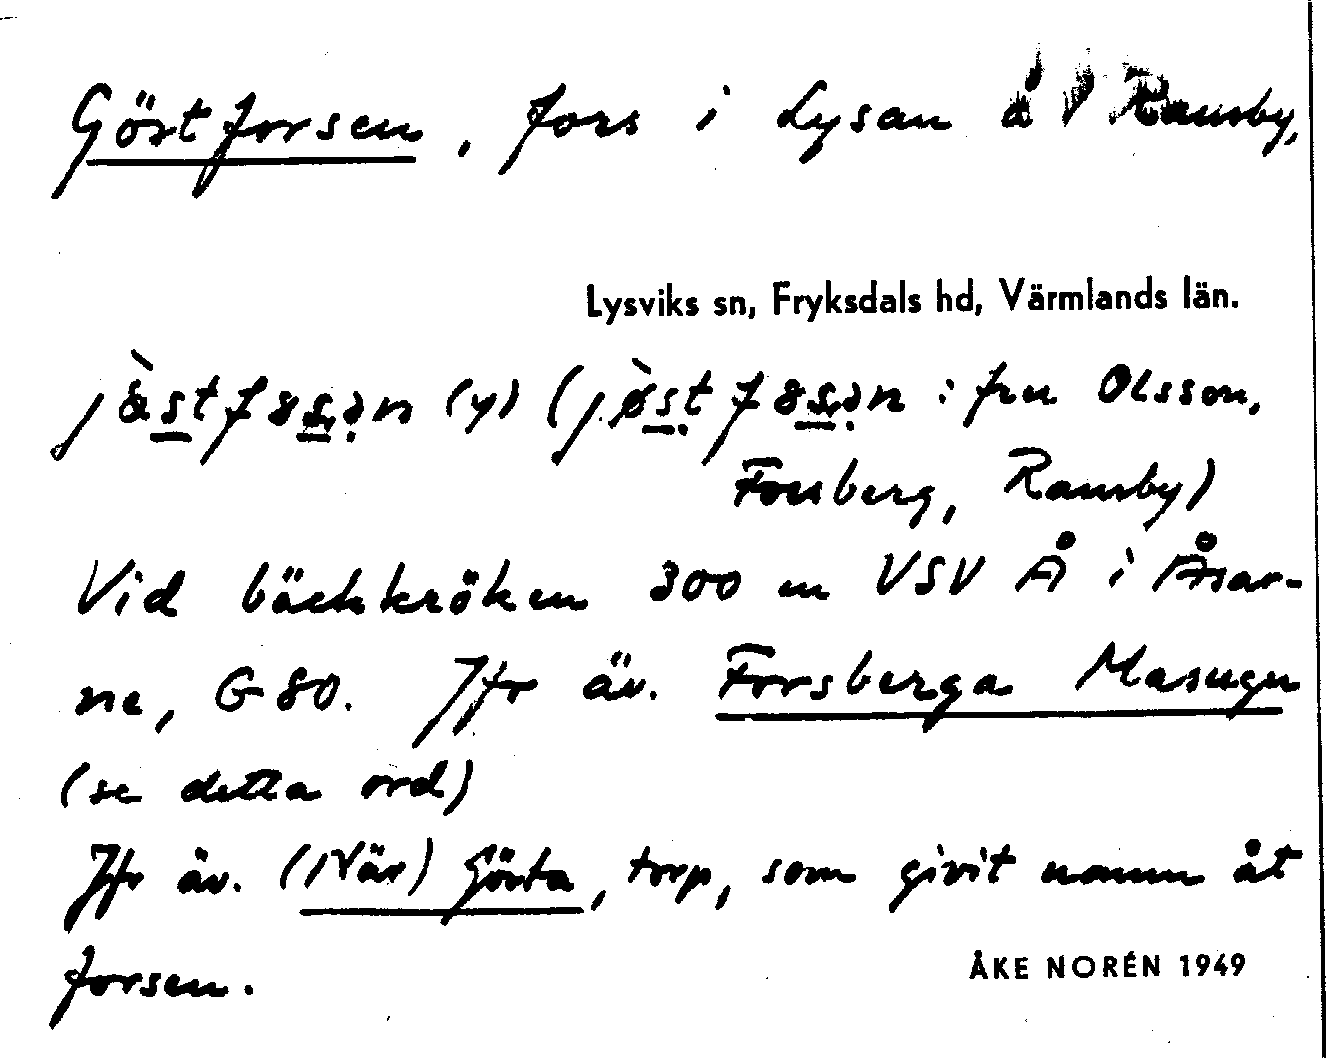 Görtforsen, fors i Lysan å V Ransby,
Lysviks sn, Fryksdals hd, Värmlands län.
(y) ( : fru Olsson,
Forsberg, Ransby)
Vid bäckkröken 300 m VSV Å i Åsar-
ne, G 80. Jfr äv. Forsberga Masugn
(se detta ord)
Jfr äv. (När) Görta, torp, som givit namn åt
forsen.
ÅKE NORÉN 1949